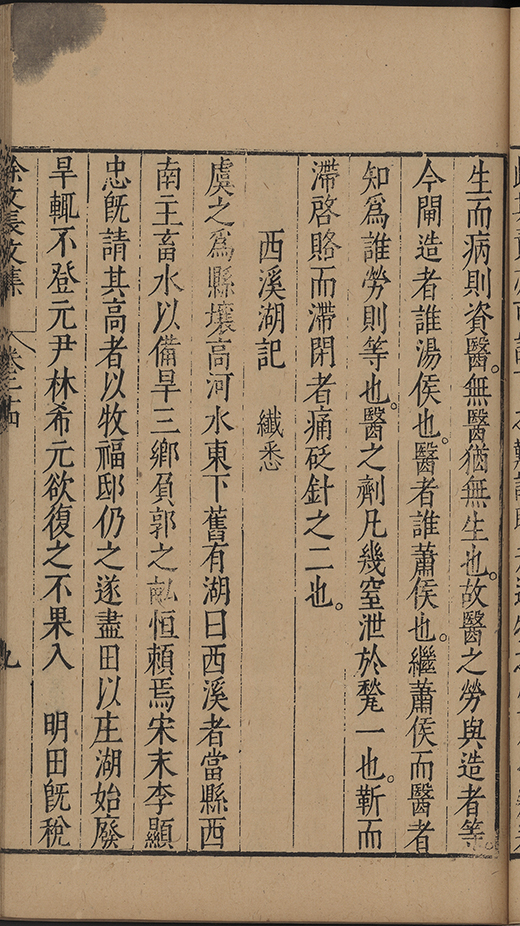 生而病則資醫。無醫猶無生也。故醫之勞與造者等。
今閘造者誰湯侯也。醫者誰蕭侯也。繼蕭侯而醫者
知爲誰勞則等也。醫之劑凡幾窒泄於甃一也。靳而
滯啓賂而滯閉者痛砭針之二也。
西溪湖記　纖悉
虞之爲縣壤高河水東下舊有湖曰西溪者當縣西
南主畜水以備旱三鄉負郭之畝恒賴焉宋末李顯
忠旣請其高者以牧福邸仍之遂盡田以庄湖始廢
旱輒不登元尹林希元欲復之不果入　明田旣稅
徐文長文集　卷之二十四　九